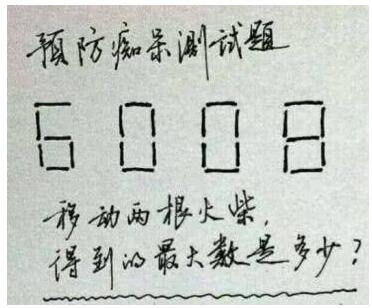 预防痴呆测试题
6 0 0 8
移动两根火柴，
得到的最大数是多少？